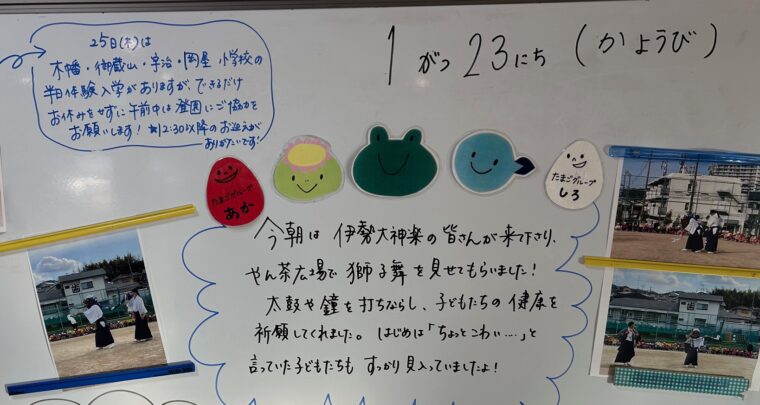 25日(木)は
木幡・御蔵山・宇治・岡屋 小学校の
半日体験入学がありますが、できるだけ
お休みをせずに午前中は登園にご協力を
お願いします! *12:30以降のお迎えが
ありがたいです!
1がつ23にち(かようび)
たまごグループ
あか
たまごグループ
しろ
今朝は伊勢大神楽の皆さんが来て下さり、
やん茶広場で獅子舞を見せてもらいました!
太鼓や鐘を打ちならし、子どもたちの健康を
祈願してくれました。はじめは「ちょっとこわい....」と
言っていた子どもたちもすっかり見入っていましたよ!